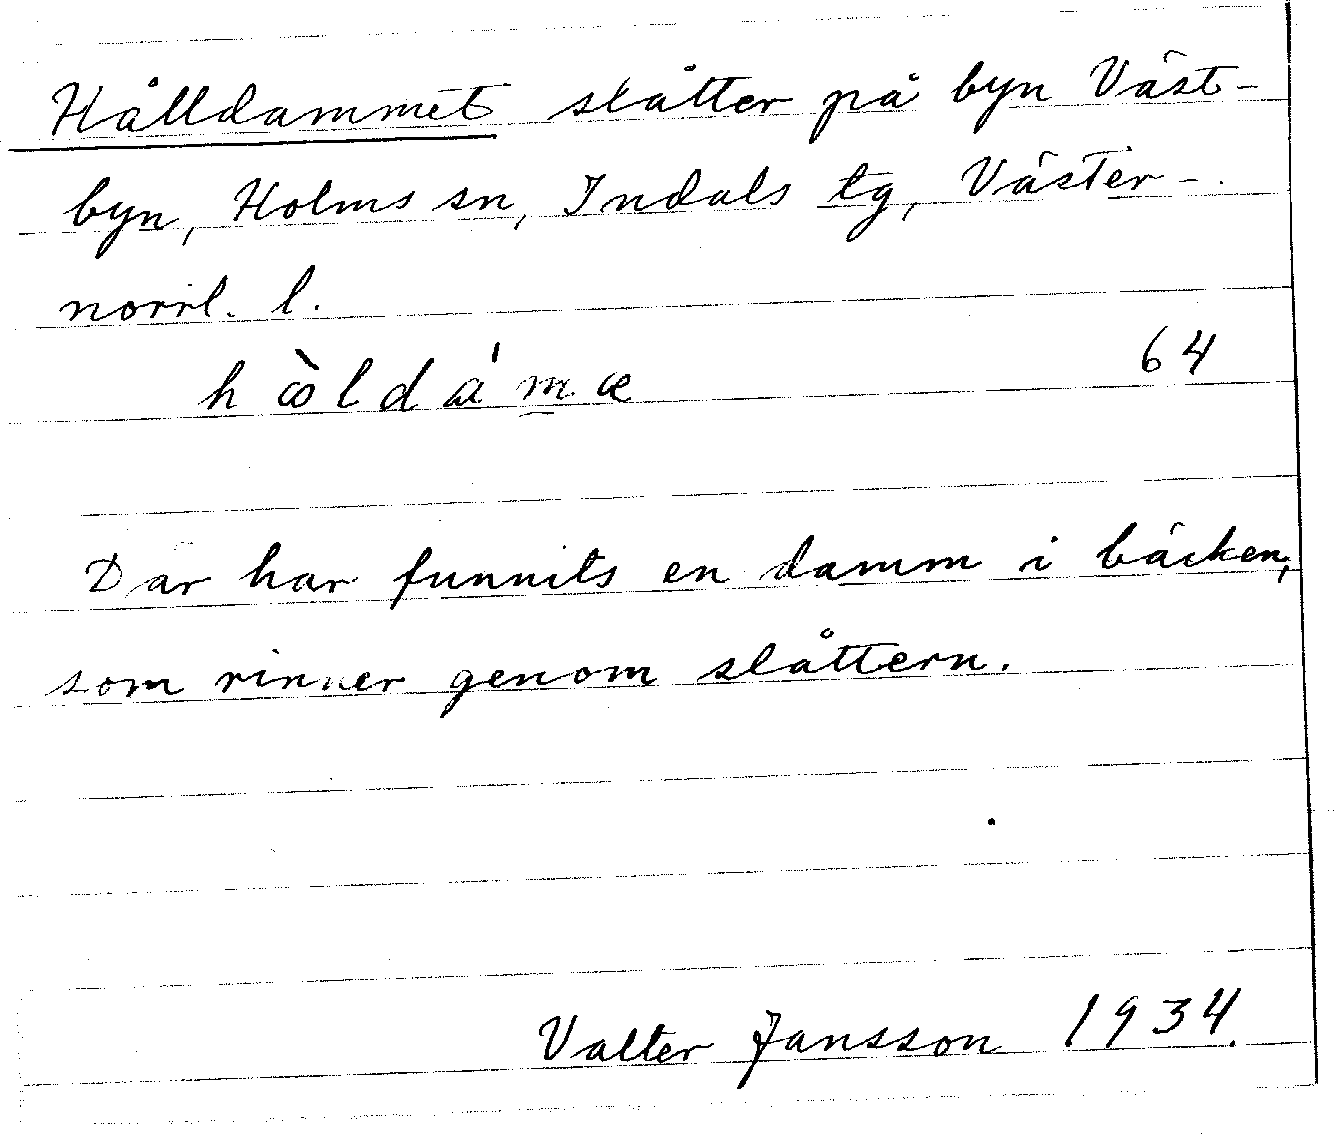 Hålldammet slåtter på byn Väst-
byn, Holms sn, Indals tg, Väster-
norrl. l.
h ꝏ̀ l d á m̲ æ 64
Där har funnits en damm i bäcken,
som rinner genom slåttern.
Valter Jansson 1934.